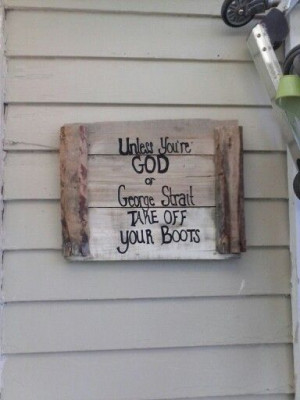 Unless You're
GOD
or
George Strait
TAKE OFF
YOUR BOOTS